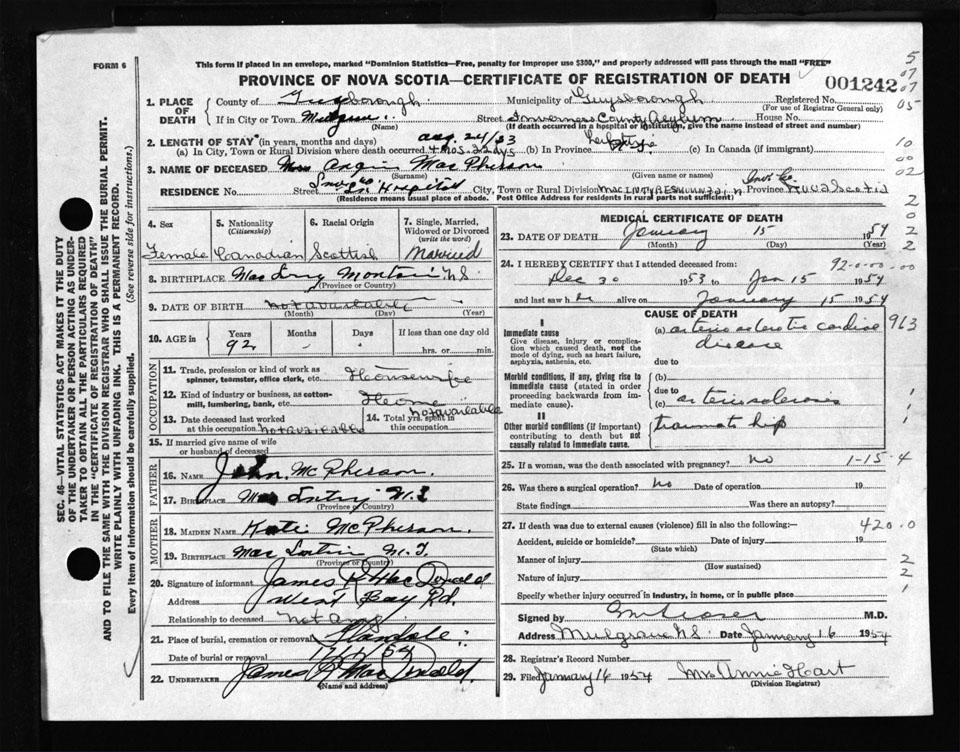 FORM 6
This form if placed in an envelope, marked "Dominion Statistics—Free, penalty for improper use $300," and properly addressed will pass through the mail "FREE"
PROVINCE OF NOVA SCOTIA—CERTIFICATE OF REGISTRATION OF DEATH
001242
5
07
07
05
1. PLACE OF DEATH
County of Guysborough Municipality of Guysborough Registered No.
(For use of Registrar General only)
If in City or Town Mulgrave Street Inverness County Asylum House No.
(Name) (If death occurred in a hospital or institution, give the name instead of street and number)
2. LENGTH OF STAY (in years, months and days) Aug. 24/53
(a) In City, Town or Rural Division where death occurred 4 mos. 22 dys (b) In Province Lifetime (c) In Canada (if immigrant)
3. NAME OF DECEASED Mrs Angie MacPherson
(Surname) (Given name or names)
RESIDENCE Street In Hospital City, Town or Rural Division MacINTYRES MOUNTAIN Inv. Co. Province Nova Scotia
(Residence means usual place of abode. Post Office Address for residents in rural parts not sufficient)
10
00
02
2
0
2
2
4. Sex
Female
5. Nationality
(Citizenship)
Canadian
6. Racial Origin
Scottish
7. Single, Married, Widowed or Divorced
(write the word)
Married
8. BIRTHPLACE N.S.
(Province or Country)
9. DATE OF BIRTH not available
(Month) (Day) (Year)
10. AGE in Years Months Days If less than one day old
92 - - hrs. or min.
OCCUPATION
11. Trade, profession or kind of work as spinner, teamster, office clerk, etc. Housewife
12. Kind of industry or business, as cotton-mill, lumbering, bank, etc. Home
13. Date deceased last worked at this occupation not available
14. Total yrs. spent in this occupation not available
15. If married give name of wife or husband of deceased
FATHER
16. NAME John McPherson.
17. BIRTHPLACE
(Province or Country)
MOTHER
18. MAIDEN NAME Katie McPherson.
19. BIRTHPLACE
(Province or Country)
20. Signature of informant James R MacDonald
Address West Bay Rd.
Relationship to deceased not any
21. Place of burial, cremation or removal Glendale
Date of burial or removal 17/1/54
22. UNDERTAKER James R MacDonald
(Name and address)
MEDICAL CERTIFICATE OF DEATH
23. DATE OF DEATH January 15 1954
(Month) (Day) (Year)
24. I HEREBY CERTIFY that I attended deceased from: 92-0-00-00
Dec 30 1953 to Jan 15 1954
and last saw her alive on January 15 1954
CAUSE OF DEATH
I
Immediate cause
Give disease, injury or complication which caused death, not the mode of dying, such as heart failure, asphyxia, asthenia, etc.
(a) arteriosclerotic cardiac 963
disease
due to
Morbid conditions, if any, giving rise to immediate cause (stated in order proceeding backwards from immediate cause).
(b)
due to
(c) arteriosclerosis
II
Other morbid conditions (if important) contributing to death but not causally related to immediate cause.
traumatic hip
1
1
1
25. If a woman, was the death associated with pregnancy? no 1-15 4
26. Was there a surgical operation? no Date of operation 19
State findings Was there an autopsy?
27. If death was due to external causes (violence) fill in also the following:— 420.0
Accident, suicide or homicide? Date of injury 19
(State which)
Manner of injury
(How sustained)
Nature of injury
Specify whether injury occurred in industry, in home, or in public place
2
2
1
Signed by M.D.
Address Mulgrave N.S. Date January 16 1954
28. Registrar's Record Number
29. Filed January 16 1954 Mrs Annie Hart
(Division Registrar)
SEC. 46—VITAL STATISTICS ACT MAKES IT THE DUTY
OF THE UNDERTAKER OR PERSON ACTING AS UNDERTAKER TO OBTAIN ALL THE PARTICULARS REQUIRED
IN THE "CERTIFICATE OF REGISTRATION OF DEATH"
AND TO FILE THE SAME WITH THE DIVISION REGISTRAR WHO SHALL ISSUE THE BURIAL PERMIT.
WRITE PLAINLY WITH UNFADING INK. THIS IS A PERMANENT RECORD.
Every item of information should be carefully supplied. (See reverse side for instructions.)